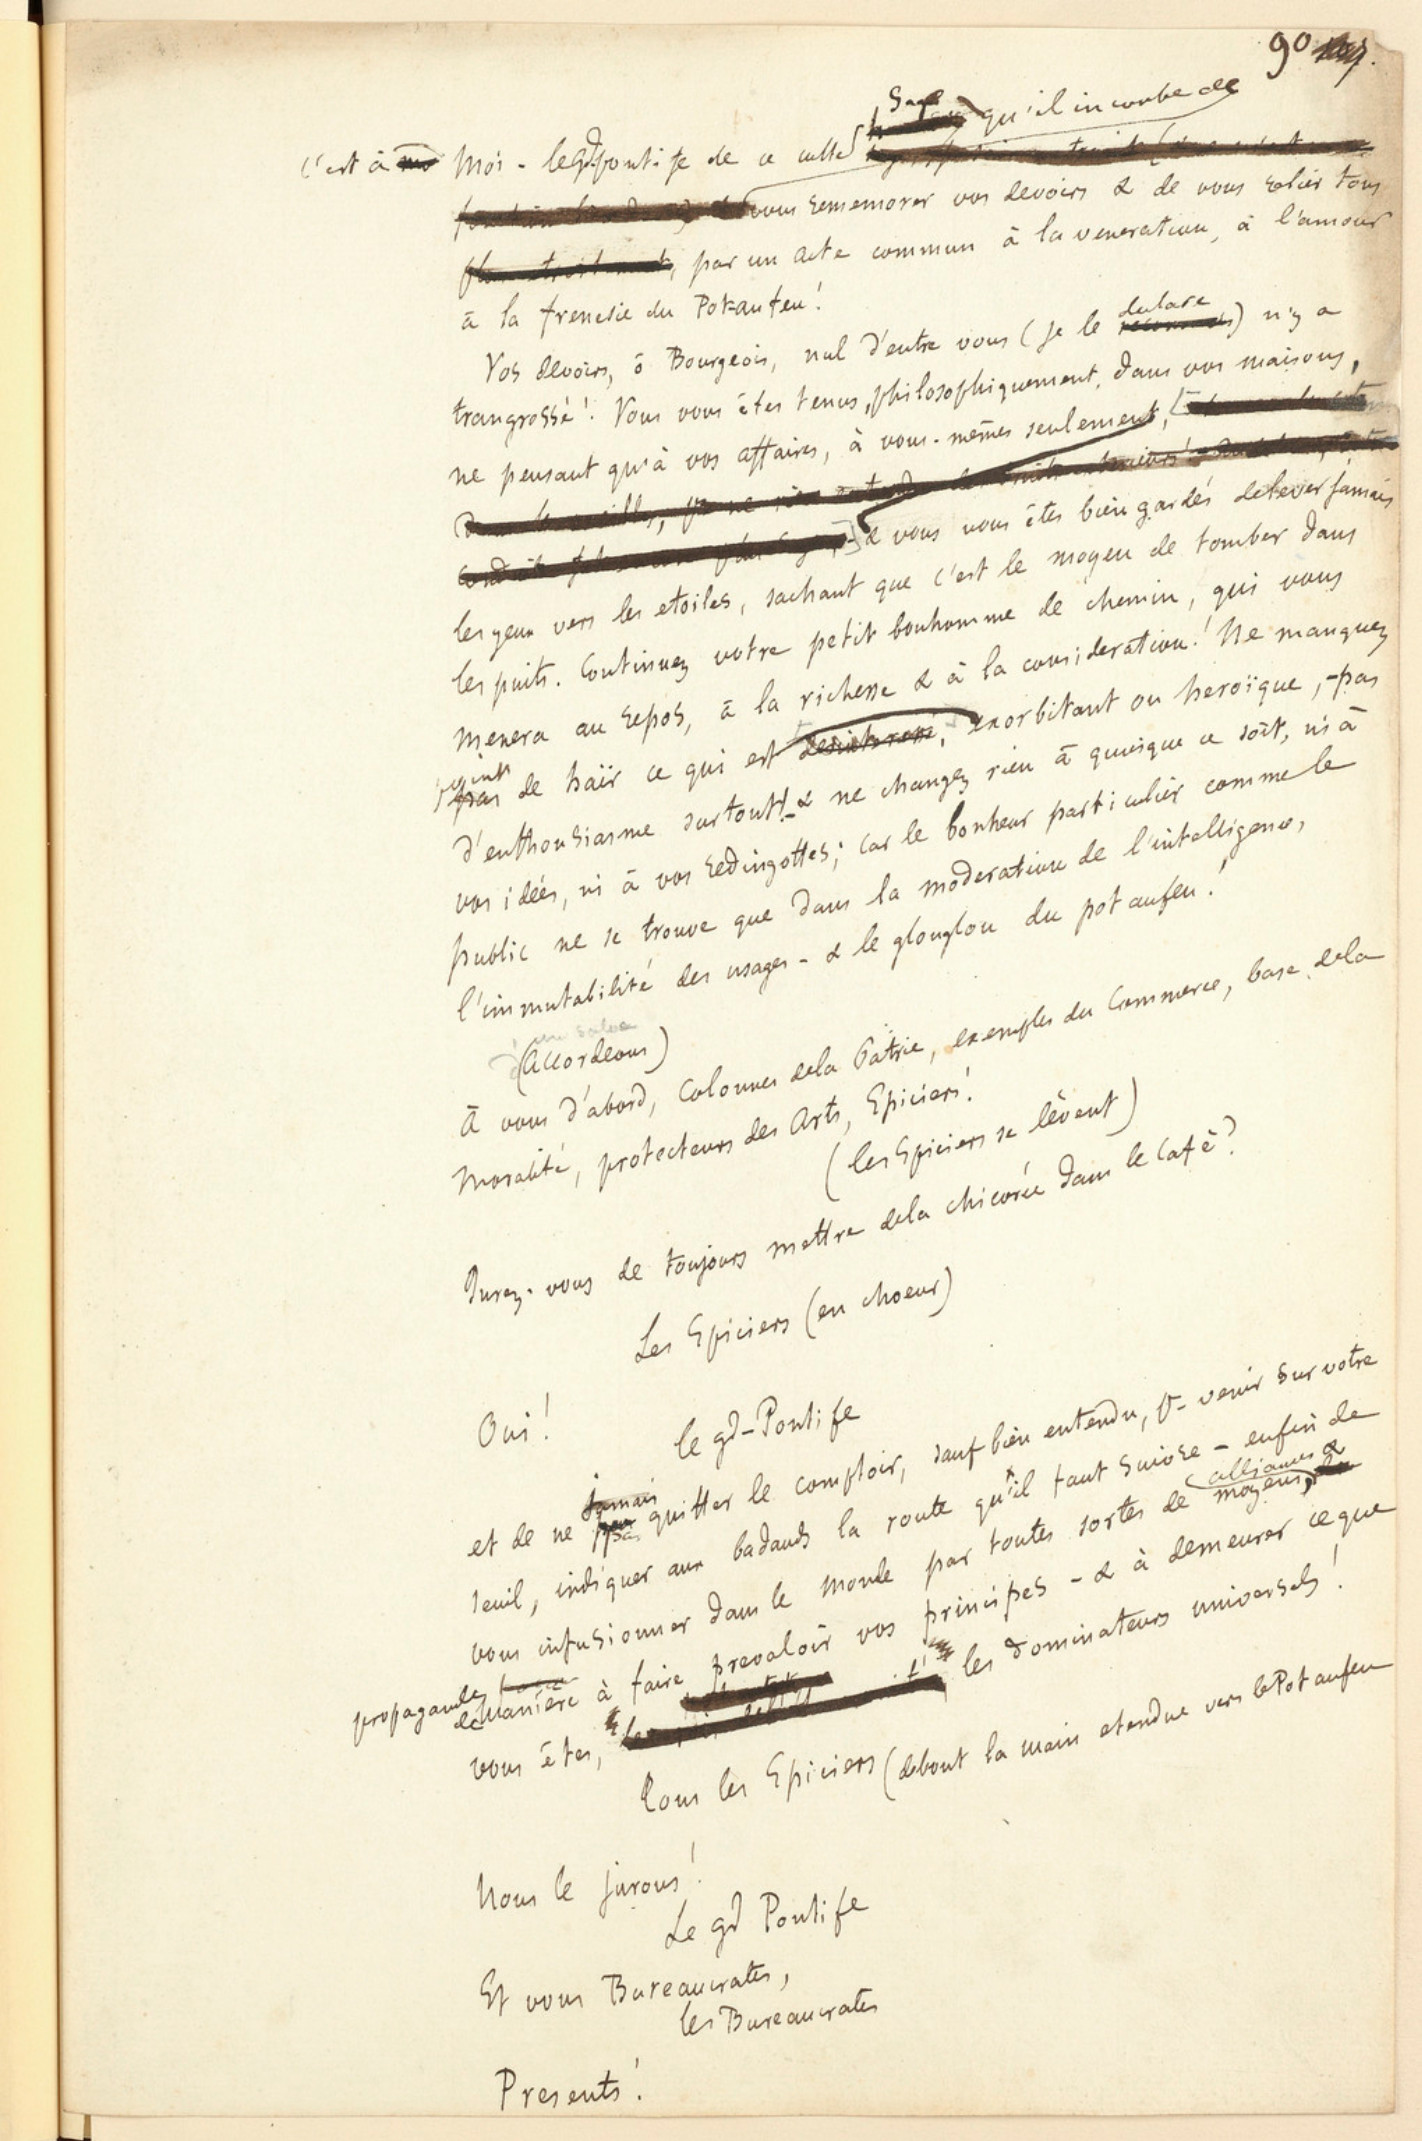 90
qu'il incombe de
c'est à Moi - le Gd pontife de ce culte
vous rememorer vos devoirs & de vous relier tous
, par un acte commun à la veneration, à l'amour
à la frenesie du Pot-au feu!
declare
Vos devoirs, ô Bourgeois, nul d'entre vous (je le ) n'y a
trangrossé! Vous vous êtes tenus, philosophiquement, dans vos maisons,
ne pensant qu'à vos affaires, à vous-mêmes seulement,
& vous vous êtes bien gardés de lever jamais
les yeux vers les etoiles, sachant que c'est le moyen de tomber dans
les puits. Continuez votre petit bonhomme de chemin, qui vous
menera au repos, à la richesse & à la consideration! Ne manquez
point
pas de haïr ce qui est desinteressé, exorbitant ou heroïque, - pas
d'enthousiasme surtout! - & ne changez rien à quoique ce soit, ni à
vos idées, ni à vos redingottes; car le bonheur particulier comme le
public ne se trouve que dans la moderation de l'intelligence,
l'immutabilité des usages - & le glouglou du pot aufeu!
(accordeons)
à vous d'abord, Colonnes dela Patrie, exemples du Commerce, base dela
Moralité, protecteurs des Arts, Epiciers!
(les Epiciers se lèvent)
Jurez-vous de toujours mettre dela chicorée dans le Café?
Les Epiciers (en choeur)
Oui!
le gd-Pontife
jamais
et de ne pas quitter le comptoir, sauf bien entendu, pr venir sur votre
seuil, indiquer aux badauds la route qu'il faut suivre - enfin de
alliances &
vous infusionner dans le monde par toutes sortes de moyens,
propagande de Manière à faire prevaloir vos principes - & à demeurer ce que
vous êtes, les dominateurs universels!
Tous les Epiciers (debout la main etendue vers le Pot aufeu
Nous le jurons!
Le gd Pontife
Et vous Bureaucrates,
les Bureaucrates
Presents!